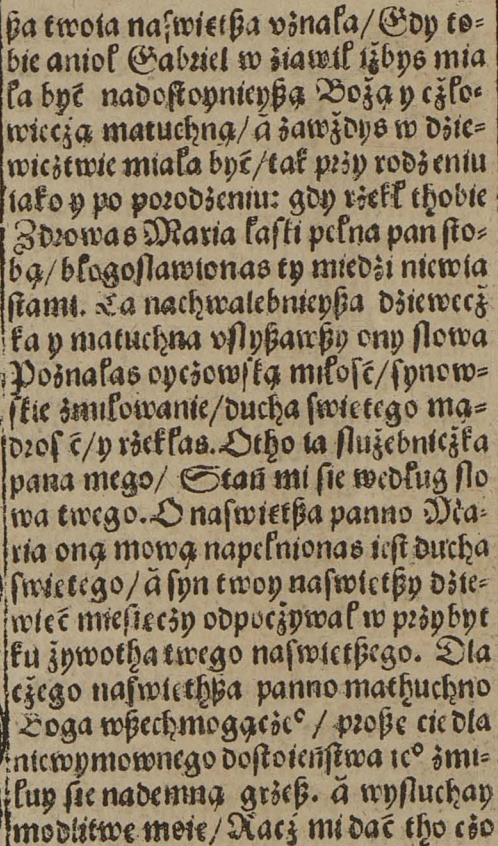 ßa twoia naſwietßa vżnała/Gdy to⸗
bie anioł Gabriel w ziawił iżbys mia
ła być nadoſtoynieyßą Bożą y cżło⸗
wiecżą matuchną/ á zawżdys w dżie⸗
wicżtwie miała być/tak przy rodzeniu
iako y po porodzeniu: gdy rżekł thobie
Zdrowas Maria łaſki pełna pan ſto⸗
bą/błogoſlawionas ty miedżi niewia
ſtami. Ta nachwalebnieyßa dziewecż
ka y matuchna vſlyßawßy ony ſlowa
Poznałas oyczowſką miłość/ſynow⸗
ſkie zmiłowanie/ducha ſwietego mą⸗
drosć/y rżekłas. Otho ia ſlużebnicżka
pana mego/ Stań mi ſie według ſlo
wa twego. O naſwietßa panno Ma⸗
ria oną mową napełnionas ieſt ducha
ſwietego/á ſyn twoy naſwietßy dżie⸗
wieć mieſięczy odpocżywał w przybyt
ku żywotha twego naſwietßego. Dla
cżego naſwiethßa panno mathuchno
Boga wßechmogącze⁰ / proßę cie dla
niewymownego doſtoieńſtwa ie⁰ zmi⸗
łuy ſie nademną grzeß. á wyſluchay
modlitwę moię/Racż mi dać tho czo